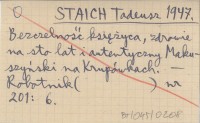 STAICH Tadeusz 1947.
Bezczelność księżyca, zdrowie
na sto lat i autentyczny Maku-
szyński na Krupówkach. —
Robotnik ( ) nr
201: 6.